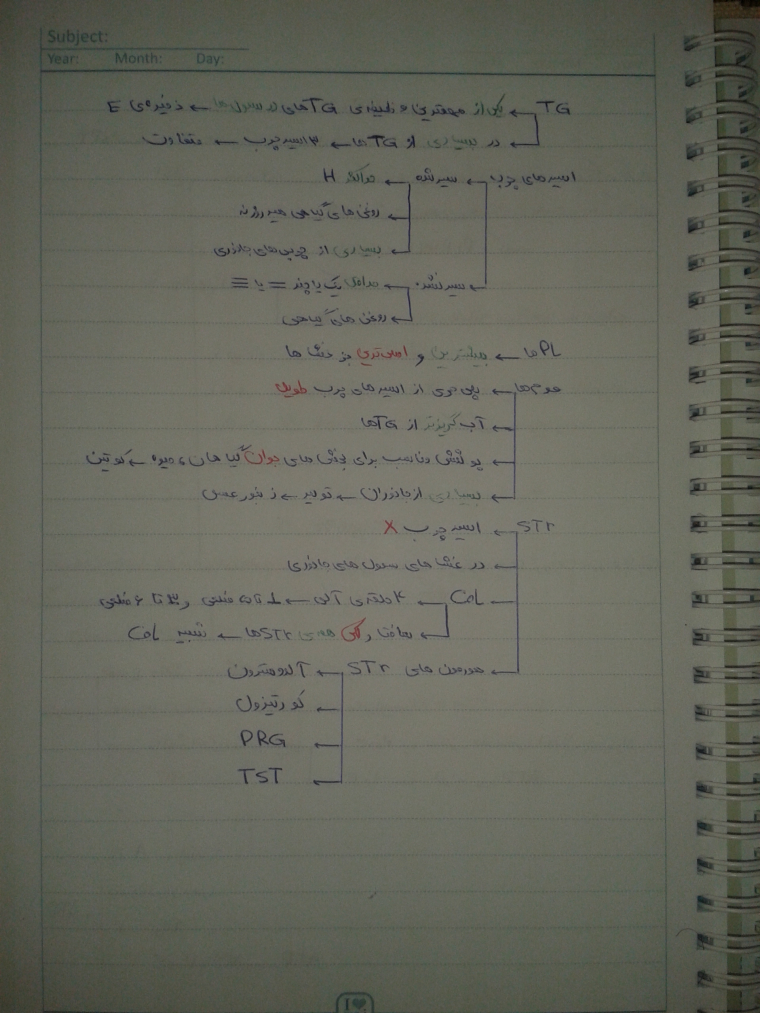 Subject:
Year: Month: Day:
TG ← یکی از مهمترین وظیفه‌ی TGهای در سلول ها ← ذخیره‌ی E
← در بسیاری از TG ها ← ۳ اسید چرب ← متفاوت
اسیدهای چرب ← سیر شده ← حداکثر H
← روغن های گیاهی هیدروژنه
← بسیاری از چربی‌های جانوری
← سیر نشده ← حداقل یک یا چند = یا ≡
← روغن های گیاهی
PLها ← بیشترین و اصلی‌ترین جز غشا ها
موم‌ها ← پلی مری از اسیدهای چرب طویل
← آب گریزتر از TGها
← پوششی مناسب برای بخش های جوان گیاهان، میوه ← کوتین
← بسیاری از جانوران ← تولید ← زنبور عسل
STr ← اسید چرب X
← در غشاهای سلول های جانوری
← CoL ← ۴ حلقه‌ی آلی ← ۱ تای ۵ ضلعی و ۳ تا ۶ ضلعی
← ساختار کلی همه‌ی STrها ← شبیه CoL
← هورمون های STr ← آلدوسترون
← کورتیزول
← PRG
← TST
I